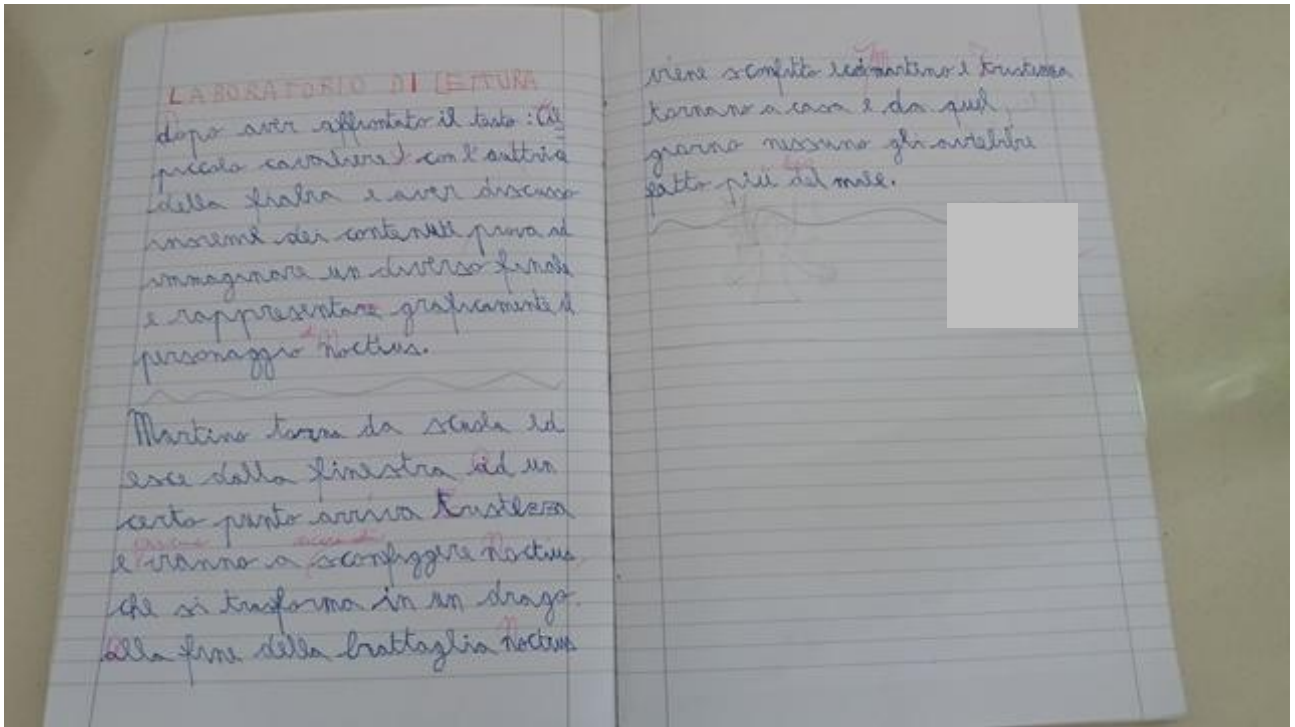 LABORATORIO DI LETTURA
dopo aver affrontato il testo: (Il
piccolo cavaliere) con l'auttrice
della fiaba e aver discusso
insieme dei contenuti prova ad
immaginare un diverso finale
e rappresentare graficamente il
personaggio di Noctius.
Martino torna da scuola ed
esce dalla finestra ad un
certo punto arriva tristezza
e iranno a sconfiggere Noctius
che si trasforma in un drago.
alla fine della battaglia Noctius
viene sconfitto ed martino e tristezza
tornano a casa e da quel
giorno nessuno gli avrebbe
fatto più del male.